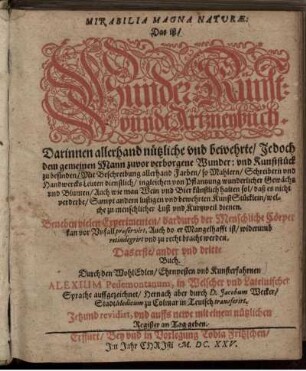 MIRABILIA MAGNA NATURÆ:
Das ist/
Wunder-Kunst-
vnndt Artzneybuch.
Darinnen allerhand nützliche vnd bewehrte/ Jedoch
dem gemeinen Mann zuvor verborgene Wunder: vnd Kunststück
zu befinden/ Mit Beschreibung allerhand Farben/ so Mahlern/ Schreibern vnd
Handwercks Leuten dienstlich/ ingleichen von Pflantzung wunderlicher Gewächs
vnd Blumen/ Auch wie man Wein vnd Bier künstlich halten sol/ daß es nicht
verderbe/ Sampt andern lustigen vnd bewehrten Kunst Stücklein/ wel-
che zu menschlicher Lust vnd Kurtzweil dienen.
Beneben vielen Experimenten/ dardurch der Menschliche Cörper
kan vor Vnfall præservirt, Auch do er Mangelhafft ist/ widerumb
redintegrirt vnd zu recht bracht werden.
Das erste/ ander vnd dritte
Buch.
Durch den WohlEdlen/ Ehrnvesten vnd Kunsterfahrnen
ALEXIUM Pedemontanum, in Welscher vnd Lateinischer
Sprache auffgezeichnet/ Hernach aber durch D. Jacobum Wecker/
Stadt Medicum zu Colmar in Teutsch transferirt,
Jetzund revidirt, vnd auffs newe mit einem nützlichen
Register an Tag geben.
Erffurt/ Bey vnd in Vorlegung Tobiæ Fritzschen/
Im Jahr CHRISTI M. DC. XXV.